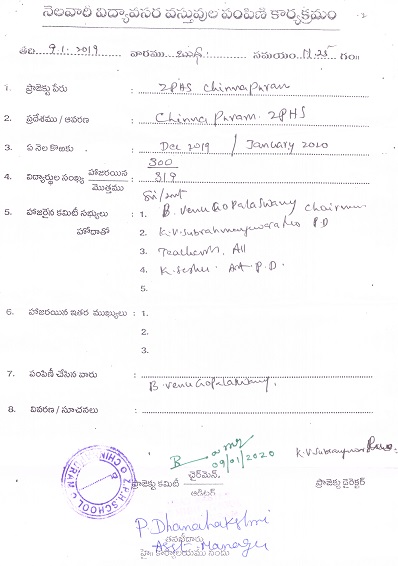 నెలవారీ విద్యావసర వస్తువుల పంపిణీ కార్యక్రమం
తేది 9.1.2019 వారము బుధ: సమయం 11.25 గం॥
1. ప్రాజెక్టు పేరు : ZPHS Chinnapuram
2. ప్రదేశము / ఆవరణ : Chinnapuram. ZPHS
3. ఏ నెల కొఱకు : Dec 2019 / January 2020
4. విద్యార్థుల సంఖ్య హాజరయిన మొత్తము : 300 319
5. హాజరైన కమిటీ సభ్యులు హోదాతో : 1. B. Venu Gopalaswamy Chairman
2. K.V. Subrahmanyeswara Rao PD
3. Teachers, All
4. K. Seshu. Asst P.D.
5.
6. హాజరయిన ఇతర ముఖ్యులు : 1.
2.
3.
7. పంపిణీ చేసిన వారు : B. Venu Gopalaswamy.
8. వివరణ / సూచనలు :
09/01/2020
చైర్‌మెన్.
ప్రాజెక్టు కమిటీ ఆడిటర్ ప్రాజెక్టు డైరెక్టర్
Z.P.H.SCHOOL
P Dhanalakshmi
తనిఖీదారు
Asst. Manager
హై॥ కార్యాలయము నందు